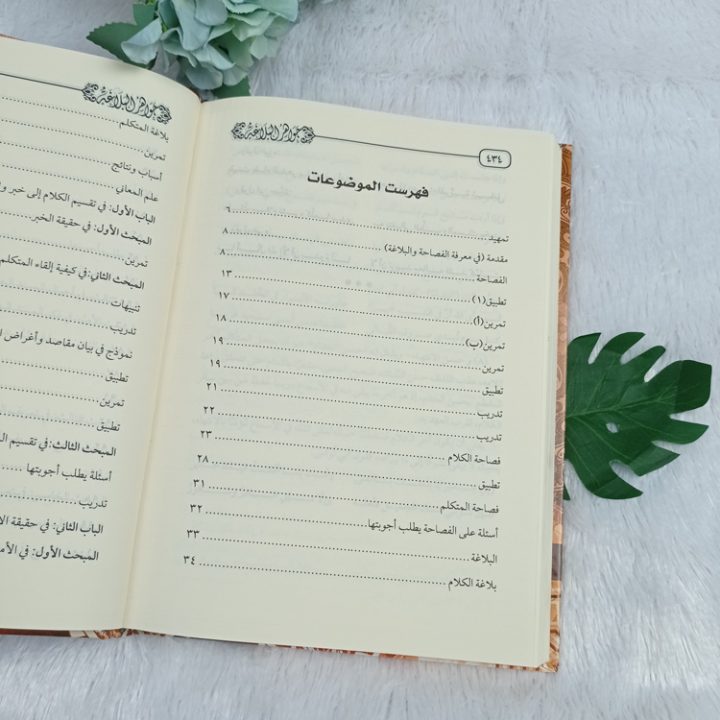 جواهر البلاغة
٤٣٤
فهرست الموضوعات
تمهيد ٦
مقدمة (في معرفة الفصاحة والبلاغة) ٨
الفصاحة ٨
تطبيق (١) ١٣
تمرين (أ) ١٧
تمرين (ب) ١٨
تمرين ١٩
تطبيق ١٩
تدريب ٢١
تدريب ٢٢
فصاحة الكلام ٢٣
تطبيق ٢٨
فصاحة المتكلم ٣١
أسئلة على الفصاحة يطلب أجوبتها ٣٢
البلاغة ٣٣
بلاغة الكلام ٣٤
جواهر البلاغة
بلاغة المتكلم
تمرين
أسباب ونتائج
علم المعاني
الباب الأول: في تقسيم الكلام إلى خبر
المبحث الأول: في حقيقة الخبر
تمرين
المبحث الثاني: في كيفية إلقاء المتكلم
تنبيهات
تدريب
نموذج في بيان مقاصد وأغراض
تطبيق
تمرين
تطبيق
المبحث الثالث: في تقسيم
أسئلة يطلب أجوبتها
تدريب
الباب الثاني: في حقيقة
المبحث الأول: في